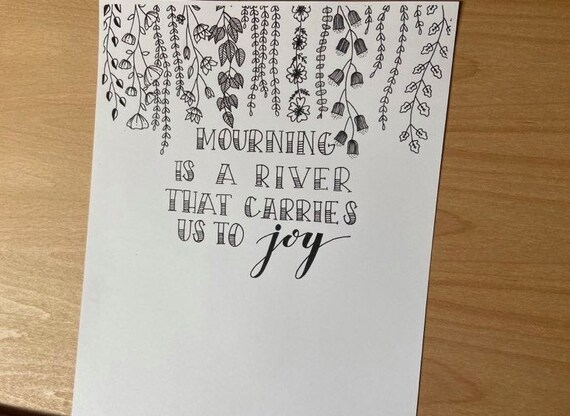 MOURNING
IS A RIVER
THAT CARRIES
US TO joy